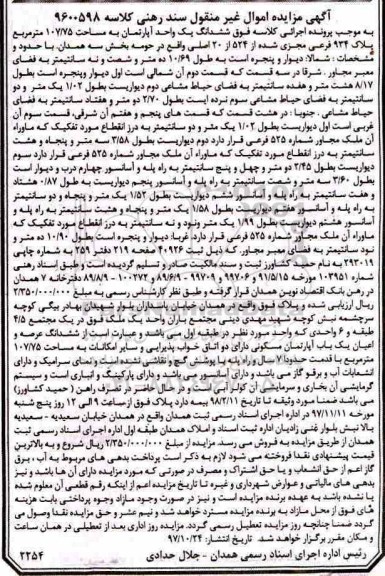 آگهی مزایده اموال غیر منقول سند رهنی کلاسه ۹۶۰۰۵۹۸
به موجب پرونده اجرائی کلاسه فوق ششدانگ یک واحد آپارتمان به مساحت ۱۰۷/۷۵ مترمربع
پلاک ۹۳۴ فرعی مجزی شده از ۵۲۴ از ۲۰ اصلی واقع در حومه بخش سه همدان، با حدود و
مشخصات: شمالا: دیوار و پنجره است به طول ۱۰/۶۹ ده متر و شصت و نه سانتیمتر به فضای
معبر مجاور. شرقا در سه قسمت که قسمت دوم آن شمالی است اول دیوار و پنجره است بطول
۸/۱۷ هشت متر و هفده سانتیمتر به فضای حیاط مشاعی دوم دیواریست بطول ۱/۰۲ یک متر و دو
سانتیمتر به فضای حیاط مشاعی سوم نرده ایست بطول ۲/۷۰ دو متر و هفتاد سانتیمتر به فضای
حیاط مشاعی. جنوبا: در هشت قسمت که قسمت های پنجم و هفتم آن شرقی، قسمت سوم آن
غربی است اول دیواریست بطول ۱/۰۲ یک متر و دو سانتیمتر به درز انقطاع مورد تفکیک که ماوراء
آن ملک مجاور شماره ۵۲۵ فرعی قرار دارد دوم دیواریست بطول ۳/۵۸ سه متر و پنجاه و هشت
سانتیمتر به درز انقطاع مورد تفکیک که ماوراء آن ملک مجاور شماره ۵۲۵ فرعی قرار دارد سوم
دیواریست بطول ۲/۴۵ دو متر و چهل و پنج سانتیمتر به راه پله و آسانسور چهارم درب و دیوار است
بطول ۳/۶۰ سه متر و شصت سانتیمتر به راه پله و آسانسور پنجم دیواریست به طول ۰/۸۷ هشتاد
و هفت سانتیمتر به راه پله و آسانسور ششم دیواریست بطول ۱/۵۲ یک متر و پنجاه و دو سانتیمتر
به راه پله و آسانسور هفتم دیواریست بطول ۱/۵۸ یک متر و پنجاه و هشت سانتیمتر به راه پله و
آسانسور هشتم دیواریست بطول ۱/۹۹ یک متر و نود و نه سانتیمتر به درز انقطاع مورد تفکیک که
ماوراء آن ملک مجاور شماره ۵۲۵ فرعی قرار دارد. غربا: دیوار و پنجره است بطول ۱۰/۹۰ ده متر و
نود سانتیمتر به فضای معبر مجاور که ذیل ثبت ۴۰۹۲۶ صفحه ۲۱۹ دفتر ۲۵۹ به شماره چاپی
۲۹۳۰۱۹ به نام حمید کشاورز ثبت و سند مالکیت صادر و تسلیم گردیده است و طبق اسناد رهنی
شماره ۱۰۳۹۵۱ مورخه ۹۱/۵/۱۵ و ۹۹۷۰۶ و ۹۹۷۰۹ - ۸۹/۶/۹ و ۱۰۰۲۷۲ - ۸۹/۸/۹ دفترخانه ۷ همدان
در رهن بانک اقتصاد نوین همدان قرار گرفته و طبق نظر کارشناس رسمی به مبلغ ۲/۳۵۰/۰۰۰/۰۰۰
ریال ارزیابی شده و پلاک فوق واقع در همدان خیابان پاسداران بلوار شهیدان بهار بیگی کوچه
سرچشمه نبش کوچه شهید مهدی چینی مجتمع باران واحد یک، ملک فوق در یک مجتمع ۴/۵
طبقه و ۶ واحدی که واحد مورد نظر در طبقه اول می باشد و عبارت است از ششدانگ عرصه و
اعیان یک باب آپارتمان مسکونی دارای دو اتاق خواب پذیرایی و سایر امکانات به مساحت ۱۰۷/۷۵
مترمربع با قدمت حدودا ۷ سال و بدنه با پوشش گچ و نقاشی شده است و نمای سرامیک و دارای
انشعابات آب و برق و گاز می باشد و دارای آسانسور می باشد و دارای پارکینگ و انباری است و سیستم
گرمایشی آن بخاری و سرمایش آن کولر آبی است و در حال حاضر در تصرف راهن (حمید کشاورز)
می باشد ضمنا مورد وثیقه تا تاریخ ۹۸/۲/۱۱ بیمه دارد پلاک فوق از ساعت ۹ الی ۱۲ روز پنج شنبه
مورخه ۹۷/۱۱/۱۱ در اداره اجرای اسناد رسمی ثبت همدان واقع در همدان خیابان سعیدیه - سعیدیه
بالا نبش بلوار غنی زادیان اداره ثبت اسناد و املاک همدان طبقه اول اداره اجرای اسناد رسمی ثبت
همدان از طریق مزایده به فروش می رسد. مزایده از مبلغ ۲/۳۵۰/۰۰۰/۰۰۰ ریال شروع و به بالاترین
قیمت پیشنهادی نقدا فروخته می شود لازم به ذکر است پرداخت بدهی های مربوط به آب، برق
گاز اعم از حق انشعاب و یا حق اشتراک و مصرف در صورتی که مورد مزایده دارای آن ها باشد و نیز
بدهی های مالیاتی و عوارض شهرداری و غیره تا تاریخ مزایده اعم از اینکه رقم قطعی آن معلوم شده
یا نشده باشد به عهده برنده مزایده است و نیز در صورت وجود مازاد وجوه پرداختی بابت هزینه
های فوق از محل مازاد به برنده مزایده مسترد خواهد شد و نیم عشر و حق مزایده نقدا وصول می
گردد ضمنا چنانچه روز مزایده تعطیل رسمی گردد، مزایده روز اداری بعد از تعطیلی در همان ساعت
و مکان مقرر برگزار خواهد شد. تاریخ انتشار: ۹۷/۱۰/۲۴
رئیس اداره اجرای اسناد رسمی همدان - جلال حدادی
۲۲۵۴